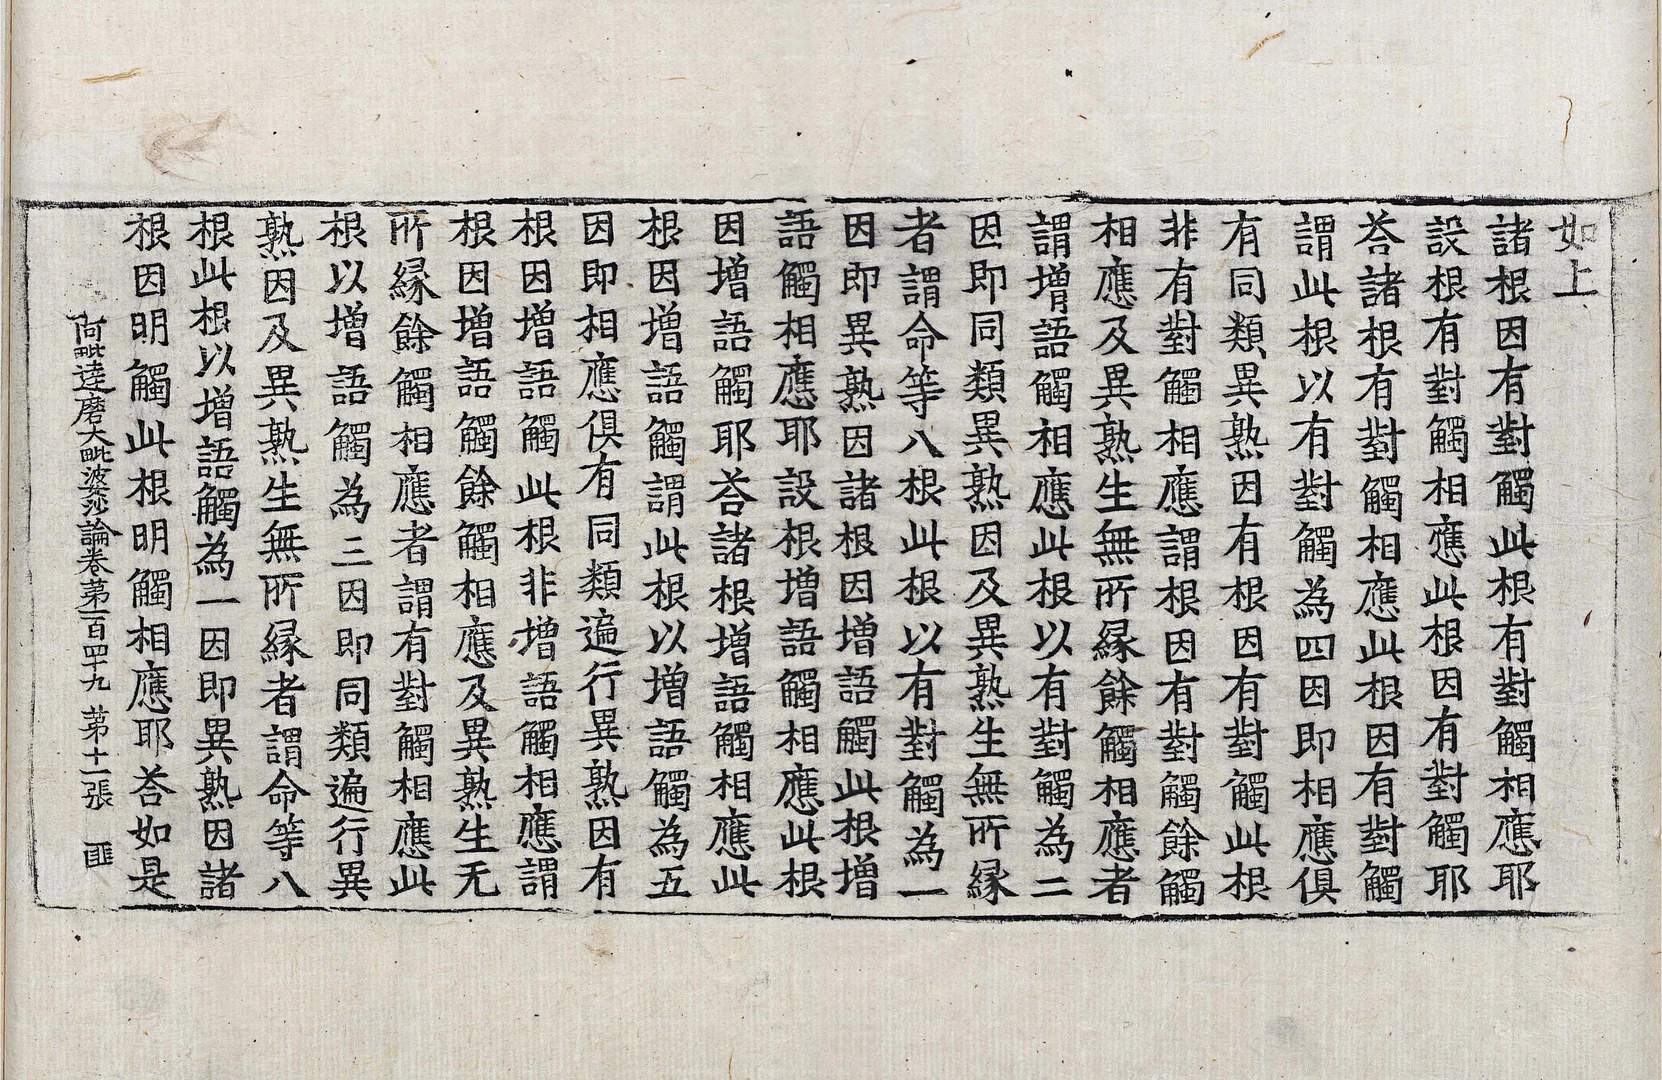 如上
諸根因有對觸此根有對觸相應耶
設根有對觸相應此根因有對觸耶
荅諸根有對觸相應此根因有對觸
謂此根以有對觸為四因即相應俱
有同類異熟因有根因有對觸此根
非有對觸相應謂根因有對觸餘觸
相應及異熟生無所縁餘觸相應者
謂增語觸相應此根以有對觸為二
因即同類異熟因及異熟生無所縁
者謂命等八根此根以有對觸為一
因即異熟因諸根因增語觸此根增
語觸相應耶設根增語觸相應此根
因增語觸耶荅諸根增語觸相應此
根因增語觸謂此根以增語觸為五
因即相應俱有同類遍行異熟因有
根因增語觸此根非增語觸相應謂
根因增語觸餘觸相應及異熟生无
所縁餘觸相應者謂有對觸相應此
根以增語觸為三因即同類遍行異
熟因及異熟生無所縁者謂命等八
根此根以增語觸為一因即異熟因諸
根因明觸此根明觸相應耶荅如是
毗達磨大毗婆沙論卷第一百四十九 第十一張 匪